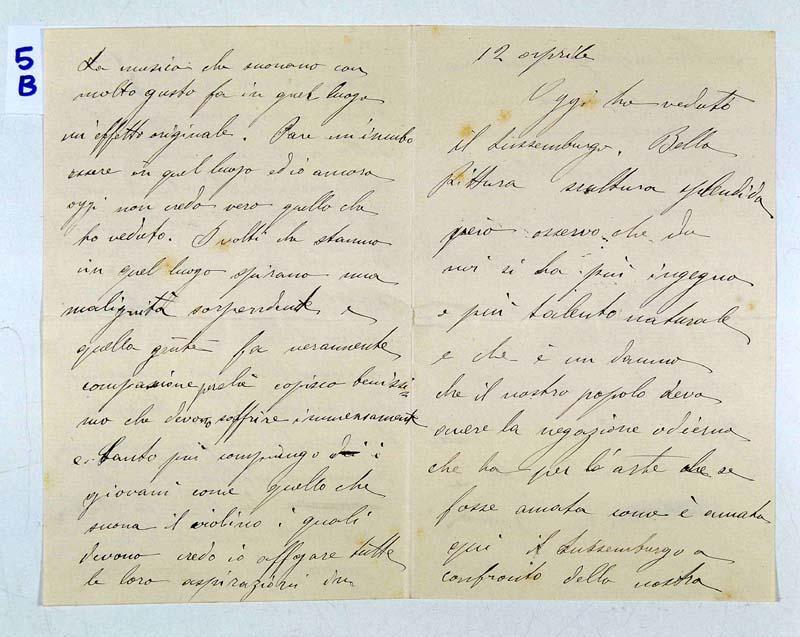 5
B
La musica che suonano con
molto gusto fa in quel luogo
un'effetto originale. Pare un incubo
essere in quel luogo ed io ancora
oggi non credo vero quello che
ho veduto. I volti che stanno
in quel luogo spirano una
malignità sorprendente e
quella gente fa veramente
compassione perchè capisco benissi-
mo che devono soffrire immensamente
e tanto più compiango i
giovani come quello che
suona il violino i quali
devono credo io affogare tutte
le loro aspirazioni in
12 aprile
Oggi ho veduto
il Lussemburgo. Bella
pittura scultura splendida
però osservo che da
noi si ha più ingegno
e più talento naturale
e che è un danno
che il nostro popolo deva
avere la negazione odierna
che ha per l'arte che se
fosse amata come è amata
qui il Lussemburgo a
confronto della nostra